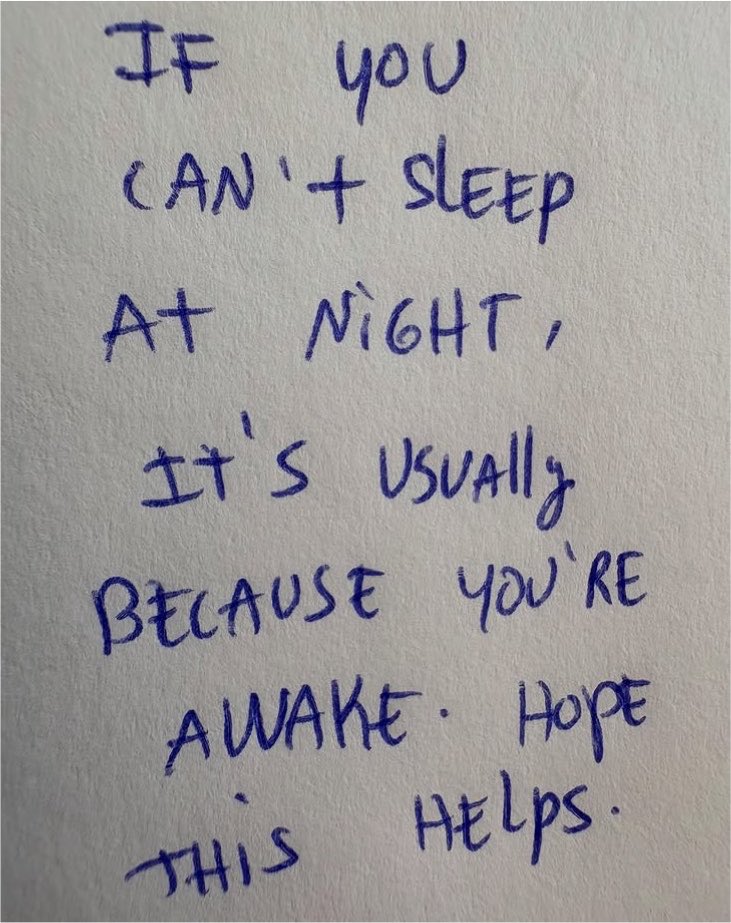 IF YOU
CAN't SlEEP
At NiGHT,
It's USUAlly
BECAUSE YOU'RE
AWAKE. HOPE
THiS HElpS.